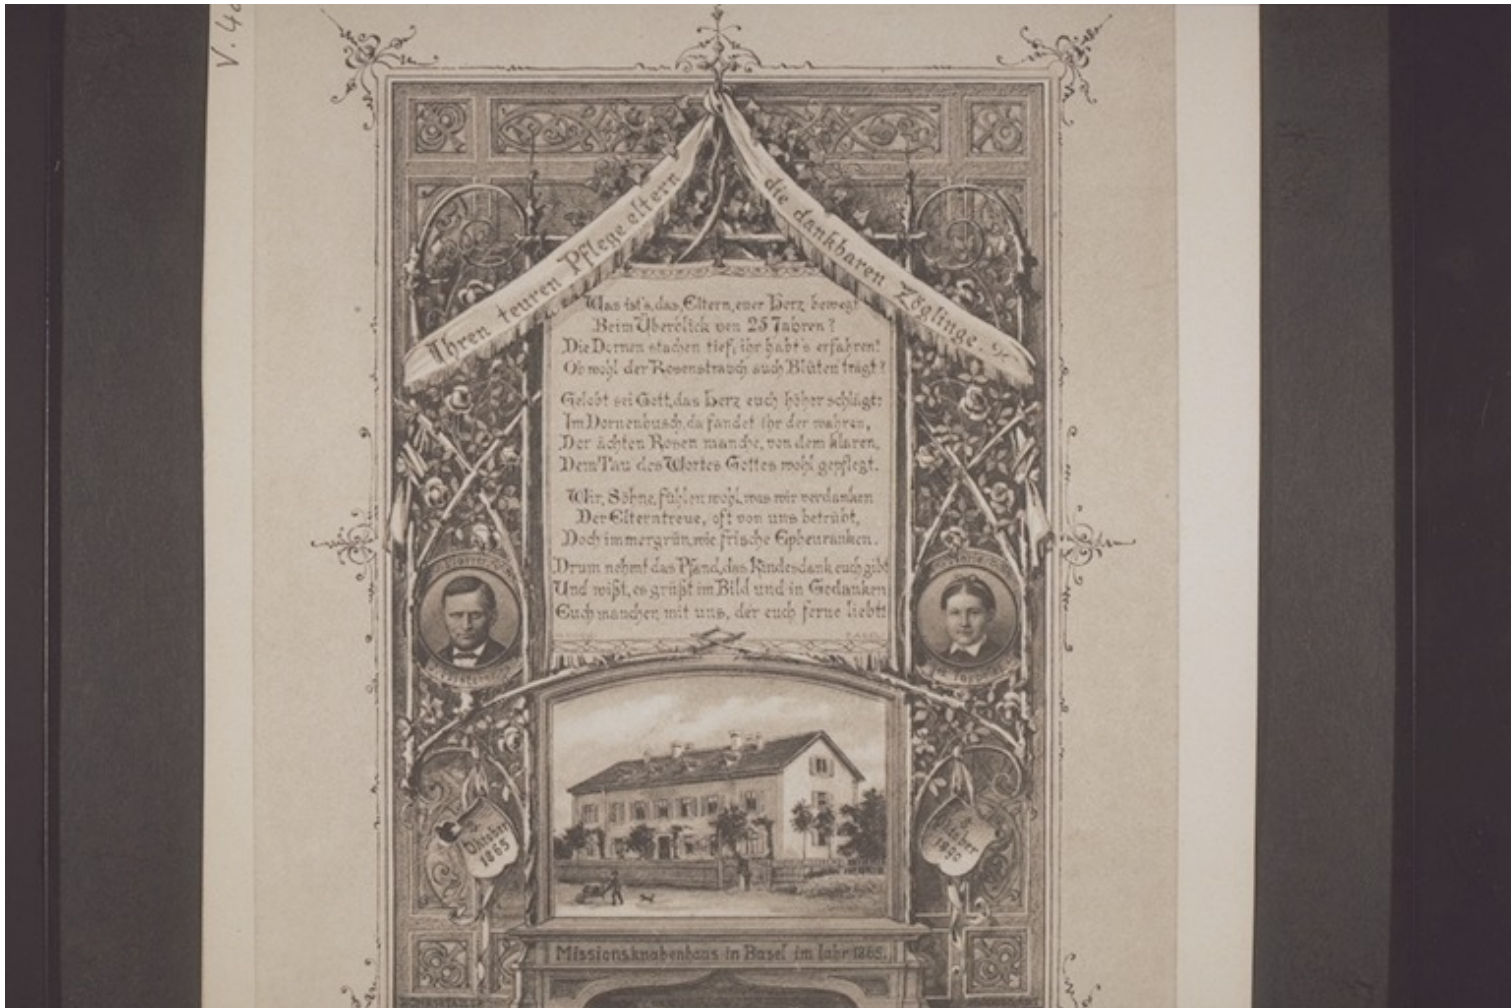 V. 4
Ihren teuren Pflegeeltern
die dankbaren Zöglinge.
Was ist's, das, Eltern, euer Herz bewegt
Beim Überblick von 25 Jahren?
Die Dornen stachen tief, ihr habt's erfahren!
Ob wohl der Rosenstrauch auch Blüten trägt?
Gelobt sei Gott, das Herz euch höher schlägt:
Im Dornenbusch, da fandet ihr der wahren,
Der ächten Rosen manche, von dem klaren,
Dem Tau des Wortes Gottes wohl gepflegt.
Wir, Söhne, fühlen wohl, was wir verdanken
Der Elterntreue, oft von uns betrübt,
Doch immergrün, wie frische Epheuranken.
Drum nehmt das Pfand, das Kindesdank euch gibt
Und wißt, es grüßt im Bild und in Gedanken
Euch mancher, mit uns, der euch ferne liebt!
Oktober
1865
1890
Missionsknabenhaus in Basel im Jahr 1865.